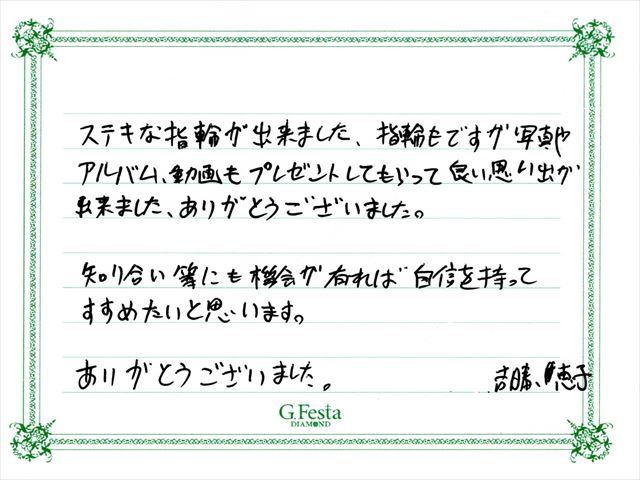 ステキな指輪が出来ました、指輪もですが写真や
アルバム、動画もプレゼントしてもらって良い思い出が
出来ました、ありがとうございました。
知り合い等にも機会が有れば自信を持って
すすめたいと思います。
ありがとうございました。
吉勝、恵子
G.Festa
DIAMOND